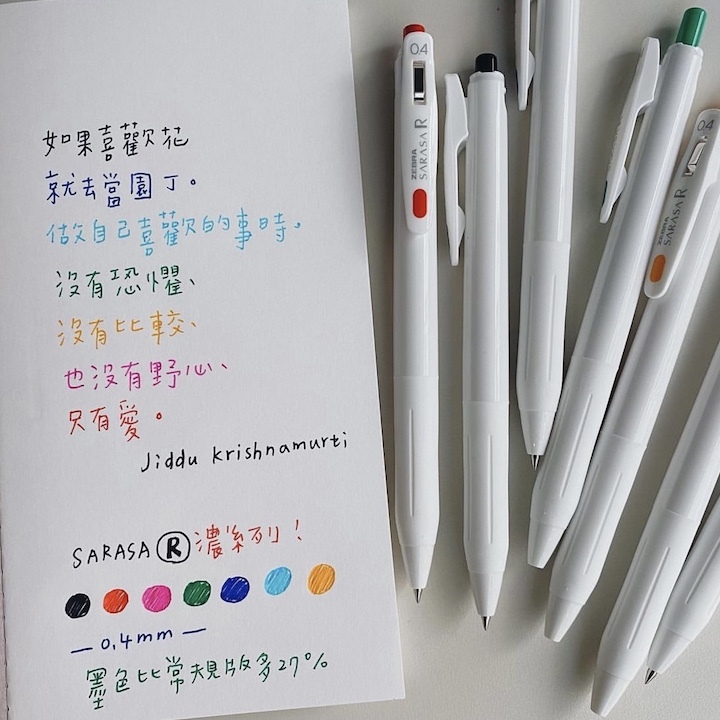 如果喜歡花
就去當園丁。
做自己喜歡的事時。
沒有恐懼、
沒有比較、
也沒有野心、
只有愛。
Jiddu Krishnamurti
SARASA R 濃系列!
— 0.4mm —
墨色比常規版多27%
0.4
ZEBRA
SARASA R
0.4
ZEBRA
SARASA R